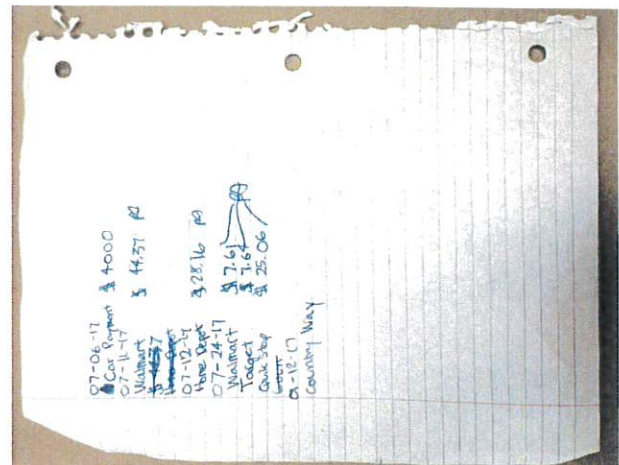 07-06-17
Car Payment $ 4000
07-11-17
Walmart $ 44.37 pg
$ 44.37
Home Depot
07-12-17
Home Depot $ 28.16 pg
07-24-17
Walmart $ 7.61
Target $ 7.64 pg
Quik Stop $ 25.06
-12-17
Country Way